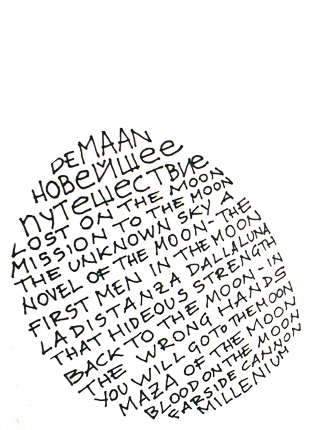 DE MAAN
НОВЕЙШЕЕ
ПУТЕШЕСТВИЕ
LOST ON THE MOON
MISSION TO THE MOON
THE UNKNOWN SKY A
NOVEL OF THE MOON-THE
FIRST MEN IN THE MOON
LA DISTANZA DALLA LUNA
THAT HIDEOUS STRENGTH
BACK TO THE MOON-IN
THE WRONG HANDS
YOU WILL GO TO THE MOON
MAZA OF THE MOON
BLOOD ON THE MOON
FARSIDE CANNON
MILLENIUM